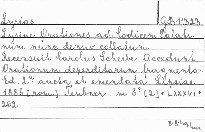 Lysias
Lysiae Orationes ad Codicem Palati-
num nunc denuo collatum.
Recensuit Carolus Scheibe Accedunt
Orationum deperditarum fragmenta.
Ed. 2ª aucta et emendata Lipsiae
1886 Teubner in 8° [2] + LXXXVI +
262.